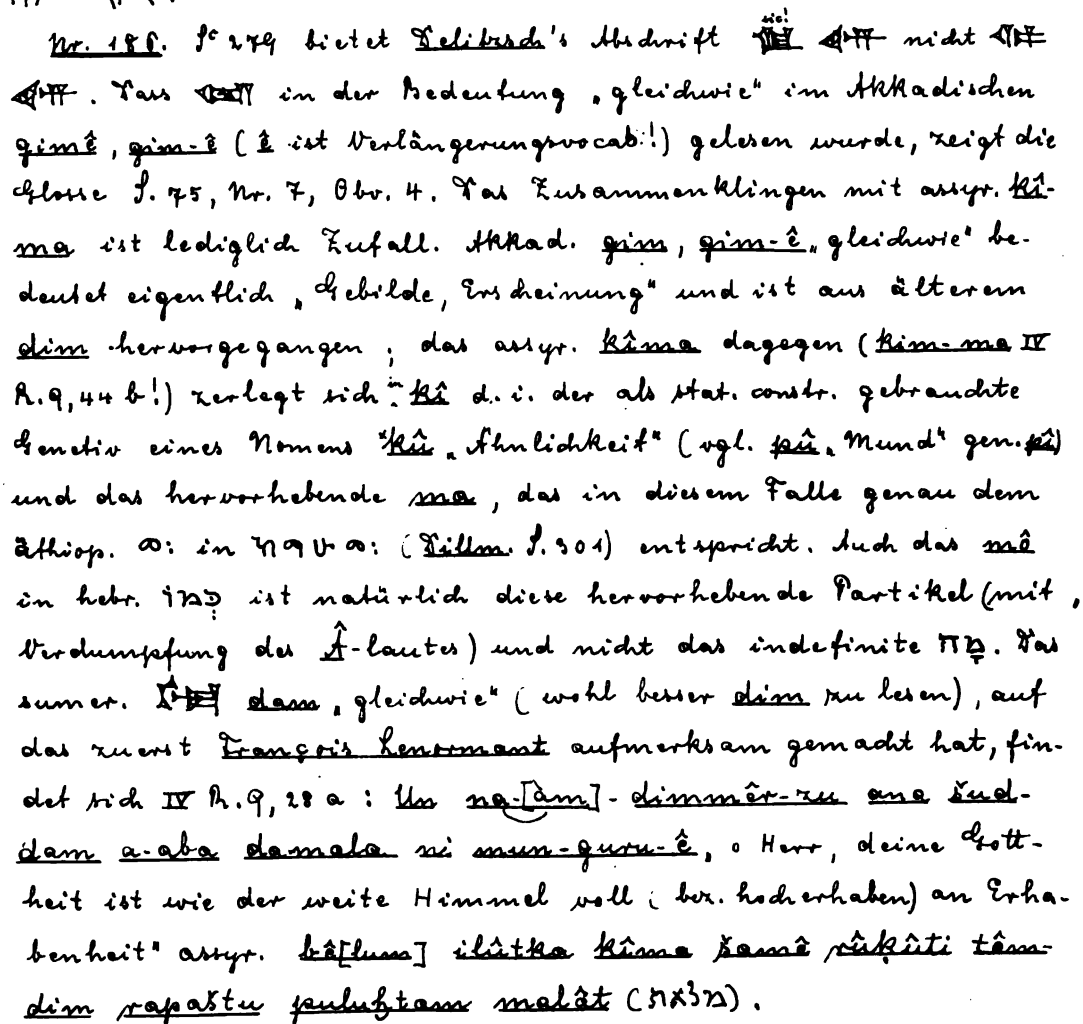 Nr. 186. Sᶜ 279 bietet Delitzsch's Abschrift sic! nicht
. Dass in der Bedeutung „gleichwie" im Akkadischen
gimê, gim-ê (ê ist Verlängerungsvocal!) gelesen wurde, zeigt die
Glosse S. 75, Nr. 7, Obv. 4. Das Zusammenklingen mit assyr. kî-
ma ist lediglich Zufall. Akkad. gim, gim-ê „gleichwie" be-
deutet eigentlich „Gebilde, Erscheinung" und ist aus älterem
dim hervorgegangen; das assyr. kîma dagegen (kim-ma IV
R. 9, 44 b!) zerlegt sich in kî d. i. der als stat. constr. gebrauchte
Genetiv eines Nomens *kû „Ähnlichkeit" (vgl. pû „Mund" gen. pî)
und das hervorhebende ma, das in diesem Falle genau dem
äthiop. ው፡ in (Dillm. S. 301) entspricht. Auch das mô
in hebr. כְּמוֹ ist natürlich diese hervorhebende Partikel (mit
Verdumpfung des Â-lautes) und nicht das indefinite מָה. Das
sumer. dam „gleichwie" (wohl besser dim zu lesen), auf
das zuerst François Lenormant aufmerksam gemacht hat, fin-
det sich IV R. 9, 28 a: Un na-[àm]-dimmêr-zu ana šud-
dam a-aba damala ni mun-guru-ê, „o Herr, deine Gott-
heit ist wie der weite Himmel voll (bez. hocherhaben) an Erha-
benheit" assyr. bê[lum] ilûtka kîma šamê rûḳûti tâm-
dim rapaštu puluḫtam malât (מלאת).